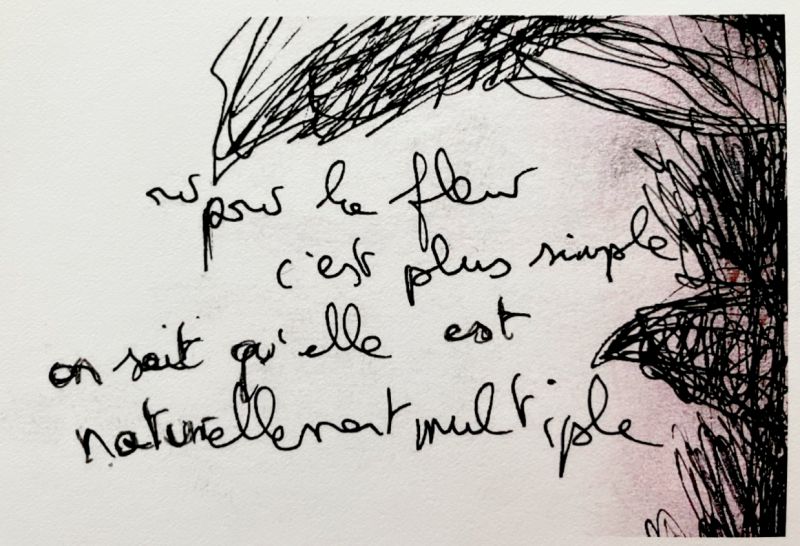 pour la fleur
c'est plus simple
on sait qu'elle est
naturellement multiple